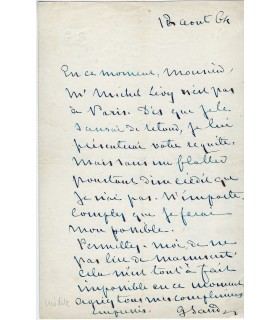 aout 64
En ce moment, Monsieur,
Mr Michel Lévy n'est pas
de Paris. Dès que je le
saurai de retour, je lui
présenterai votre requête.
Mais sans me flatter
pourtant d'un crédit que
je n'ai pas. N'importe,
comptez que je ferai
mon possible.
Permettez-moi de ne
pas lire de manuscrit.
cela m'est tout à fait
impossible en ce moment
agréez tous mes complimens
empressés.
G Sand